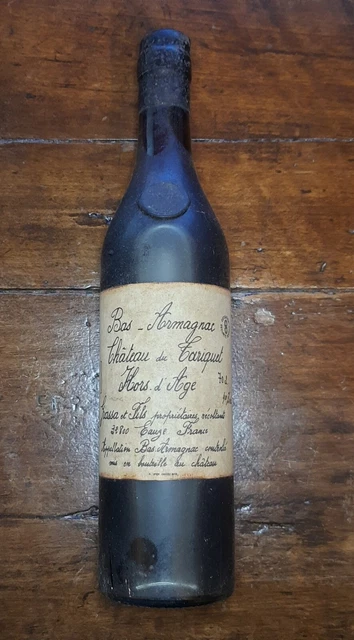 Bas-Armagnac
Château du Tariquet
Hors d'Age
70 cl
et Fils propriétaires, récoltants
32800 Eauze France
Appellation Bas-Armagnac contrôlée
mis en bouteille au château